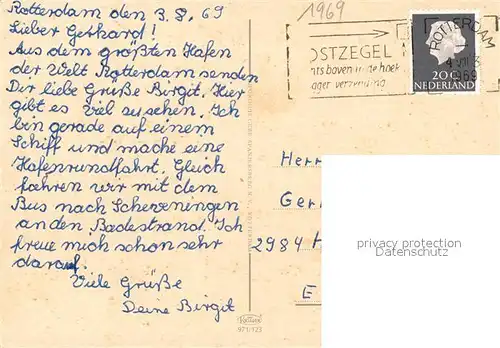 Rotterdam den 3.8.69
Lieber Gerhard!
Aus dem größten Hafen
der Welt Rotterdam senden
Dir liebe Grüße Birgit. Hier
gibt es viel zu sehen. Ich
bin gerade auf einem
Schiff und mache eine
Hafenrundfahrt. Gleich
fahren wir mit dem
Bus nach Scheveningen
an den Badestrand. Ich
freue mich schon sehr
darauf.
Viele Grüße
Deine Birgit
1969
OSTZEGEL
hts boven in de hoek
ager verzending
ROTTERDAM
1969
20c
NEDERLAND
Herr
Ger
2984 H
E
privacy protection
Datenschutz
971/123